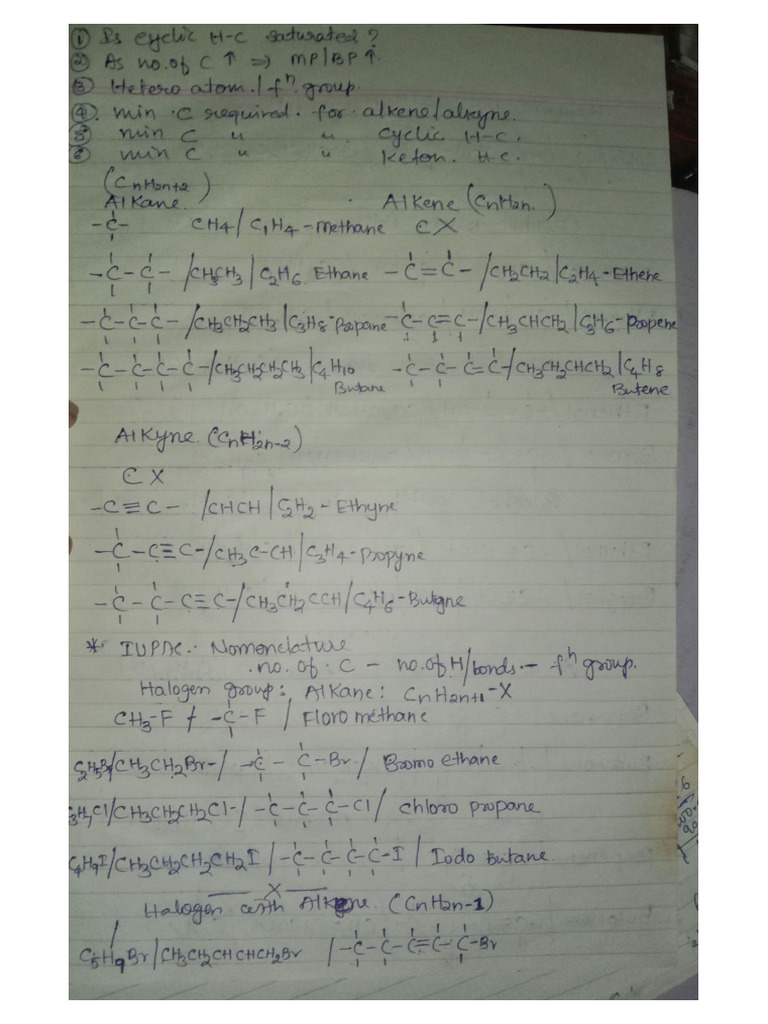 ① Is cyclic H-C saturated ?
② As no. of C ↑ ⇒ MP/BP ↑
③ Hetero atom / fⁿ group.
④ min C required for alkene/alkyne.
⑤ min C " " cyclic H-C.
⑥ min C " " Keton. H-C.
(CnH2n+2)
Alkane Alkene (CnH2n)
-C- CH4/ C1H4 - Methane C X
-C-C- /CH3CH3/ C2H6 Ethane -C=C- /CH2CH2 | C2H4 - Ethene
-C-C-C- /CH3CH2CH3 | C3H8 - Propane -C-C=C- /CH3CHCH2 | C3H6 - Propene
-C-C-C-C- /CH3CH2CH2CH3 | C4H10 -C-C-C=C- /CH3CH2CHCH2 | C4H8
Butane Butene
Alkyne (CnH2n-2)
C X
-C≡C- /CHCH | C2H2 - Ethyne
-C-C≡C- /CH3C-CH | C3H4 - Propyne
-C-C-C≡C- /CH3CH2CCH / C4H6 - Butyne
* IUPAC. Nomenclature
no. of C - no. of H/bonds - fⁿ group.
Halogen group: Alkane: CnH2n+1-X
CH3-F / -C-F / Floro methane
C2H5Br/CH3CH2Br-/ -C-C-Br / Bromo ethane
C3H7Cl/CH3CH2CH2Cl-/ -C-C-C-Cl / chloro propane
C4H9I/CH3CH2CH2CH2I /-C-C-C-C-I / Iodo butane
X
Halogen with Alkene (CnH2n-1)
C5H9Br/CH3CH2CHCHCH2Br /-C-C-C=C-C-Br